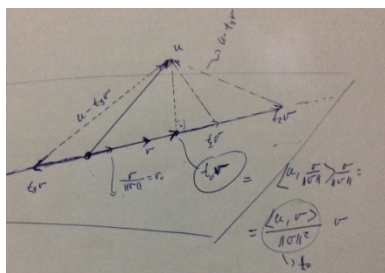 u
u - t₂v
u - t₃v
t₃v
v
t₁v
t₂v
v/||v|| = v₀
t₀v =
⟨u, v/||v||⟩ v/||v|| =
= ⟨u, v⟩/||v||² v
t₀